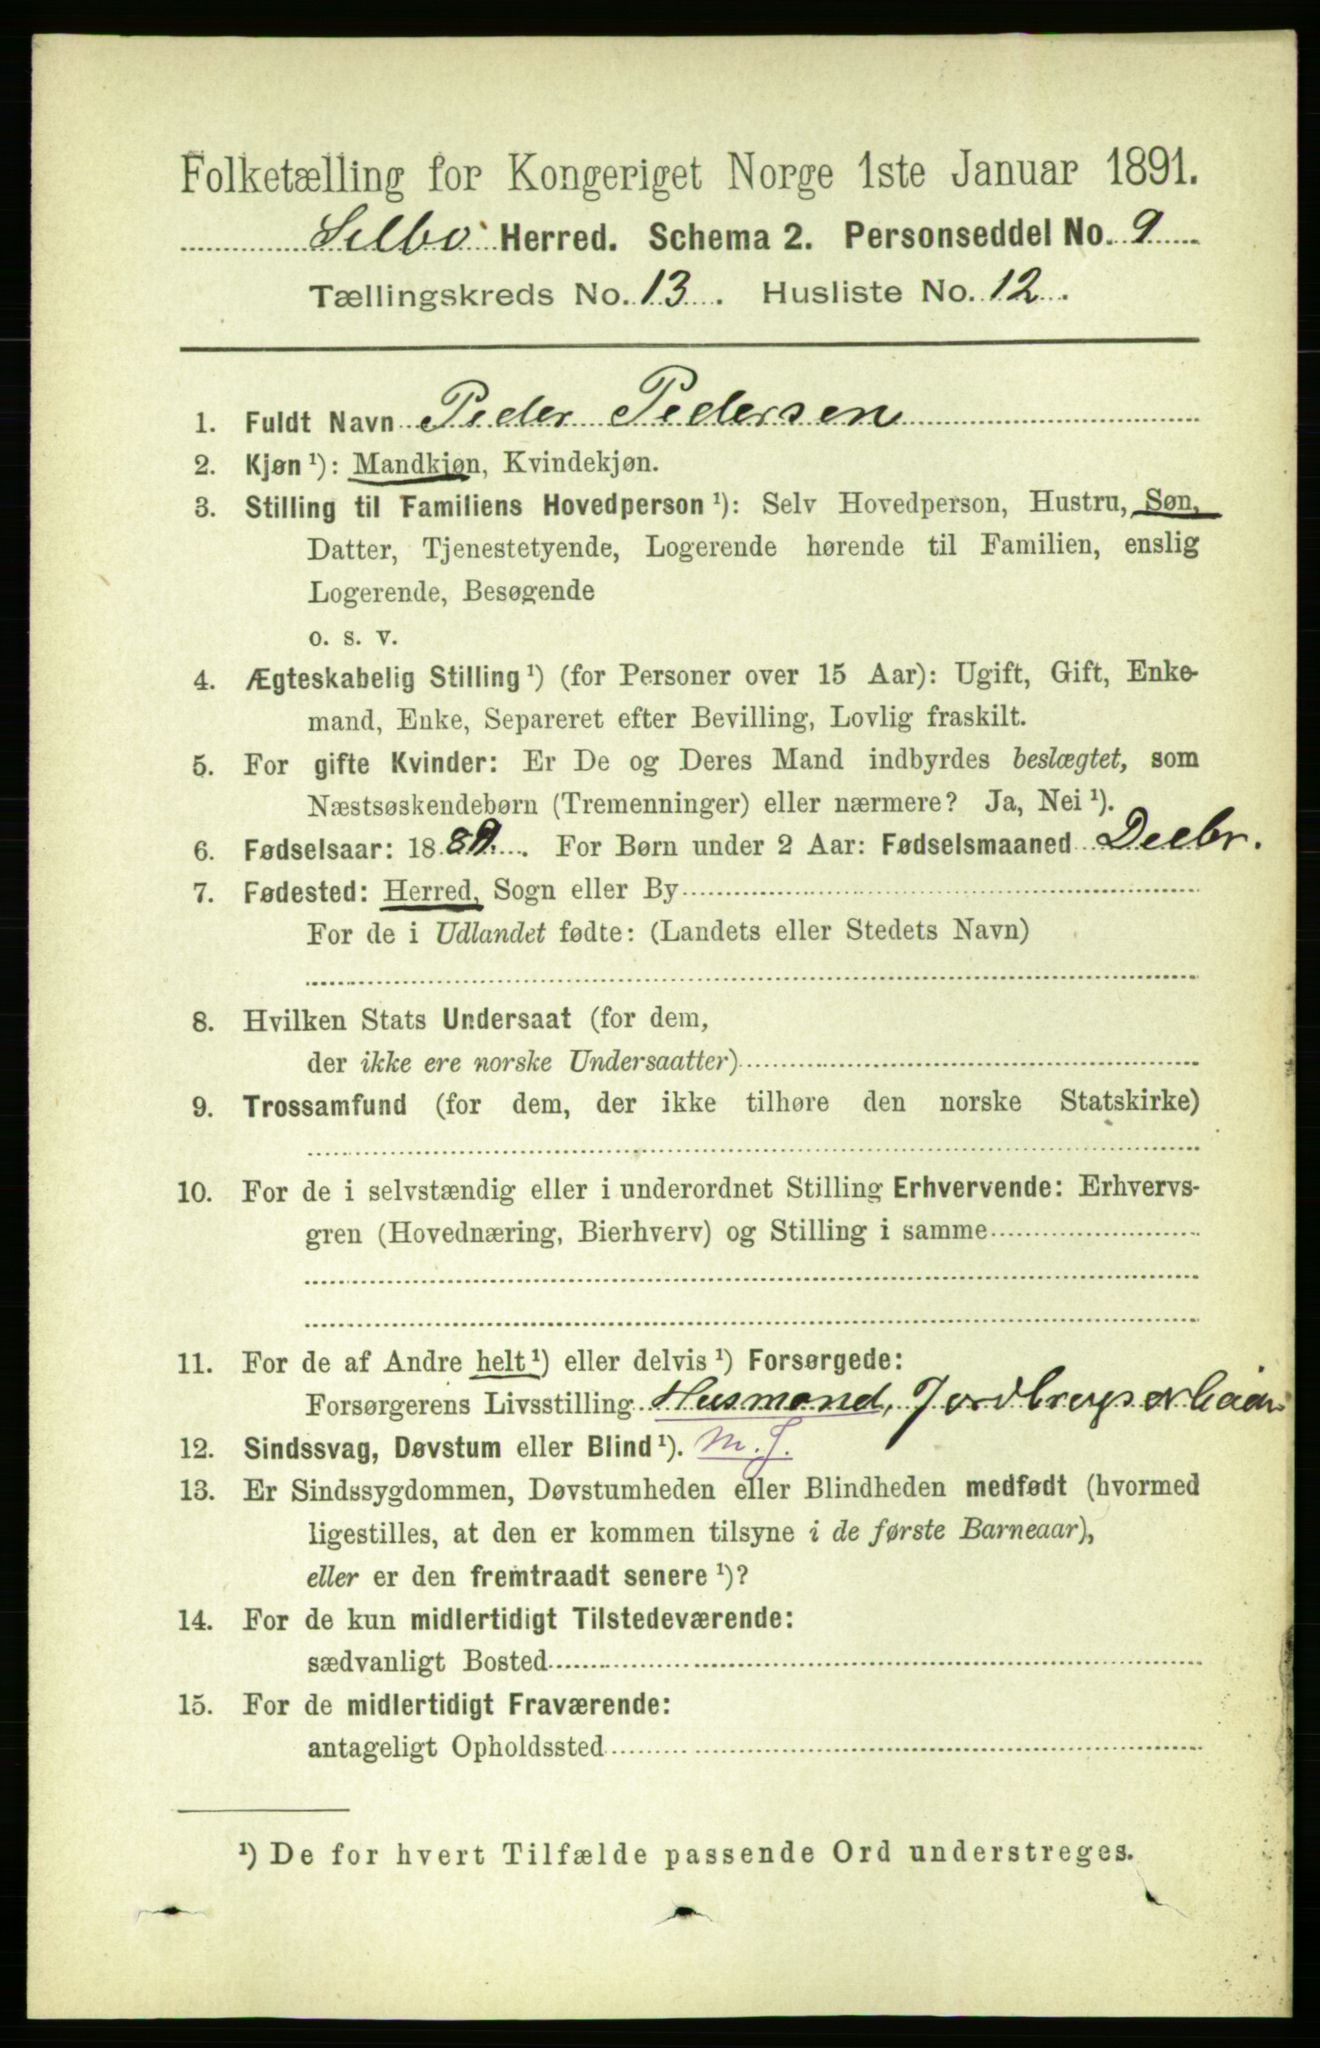 Folketælling for Kongeriget Norge 1ste Januar 1891.
Selbo Herred. Schema 2. Personseddel No. 9
Tællingskreds No. 13. Husliste No. 12.
1. Fuldt Navn Peder Pedersen
2. Kjøn ¹): Mandkjøn, Kvindekjøn.
3. Stilling til Familiens Hovedperson ¹): Selv Hovedperson, Hustru, Søn,
Datter, Tjenestetyende, Logerende hørende til Familien, enslig
Logerende, Besøgende
o. s. v.
4. Ægteskabelig Stilling ¹) (for Personer over 15 Aar): Ugift, Gift, Enke-
mand, Enke, Separeret efter Bevilling, Lovlig fraskilt.
5. For gifte Kvinder: Er De og Deres Mand indbyrdes beslægtet, som
Næstsøskendebørn (Tremenninger) eller nærmere? Ja, Nei ¹).
6. Fødselsaar: 1889. For Børn under 2 Aar: Fødselsmaaned Decbr.
7. Fødested: Herred, Sogn eller By
For de i Udlandet fødte: (Landets eller Stedets Navn)
8. Hvilken Stats Undersaat (for dem,
der ikke ere norske Undersaatter)
9. Trossamfund (for dem, der ikke tilhøre den norske Statskirke)
10. For de i selvstændig eller i underordnet Stilling Erhvervende: Erhvervs-
gren (Hovednæring, Bierhverv) og Stilling i samme
11. For de af Andre helt ¹) eller delvis ¹) Forsørgede:
Forsørgerens Livsstilling Husmand,
12. Sindssvag, Døvstum eller Blind ¹). m. J.
13. Er Sindssygdommen, Døvstumheden eller Blindheden medfødt (hvormed
ligestilles, at den er kommen tilsyne i de første Barneaar),
eller er den fremtraadt senere ¹)?
14. For de kun midlertidigt Tilstedeværende:
sædvanligt Bosted
15. For de midlertidigt Fraværende:
antageligt Opholdssted
¹) De for hvert Tilfælde passende Ord understreges.